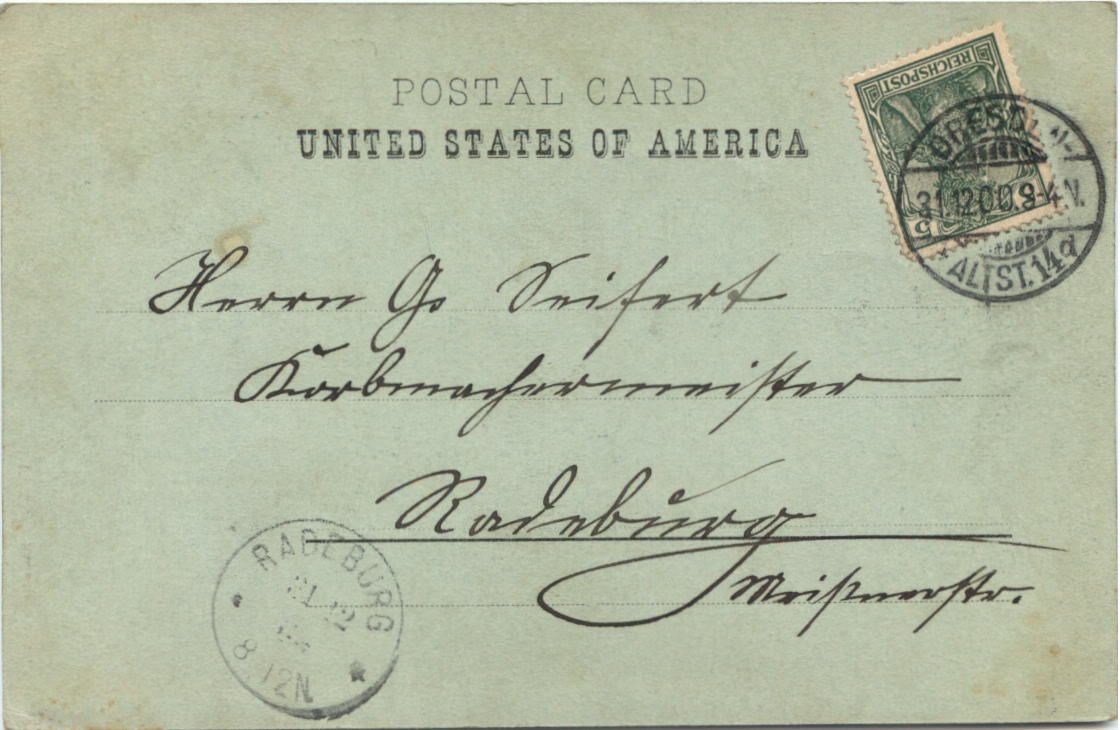 POSTAL CARD
UNITED STATES OF AMERICA
REICHSPOST
5
31.12.00.3-4.N.
ALTST. 14d
Herrn G. Seifert
Korbmachermeister
Radeburg
Meißnerstr.
RADEBURG
31 12
8 12N